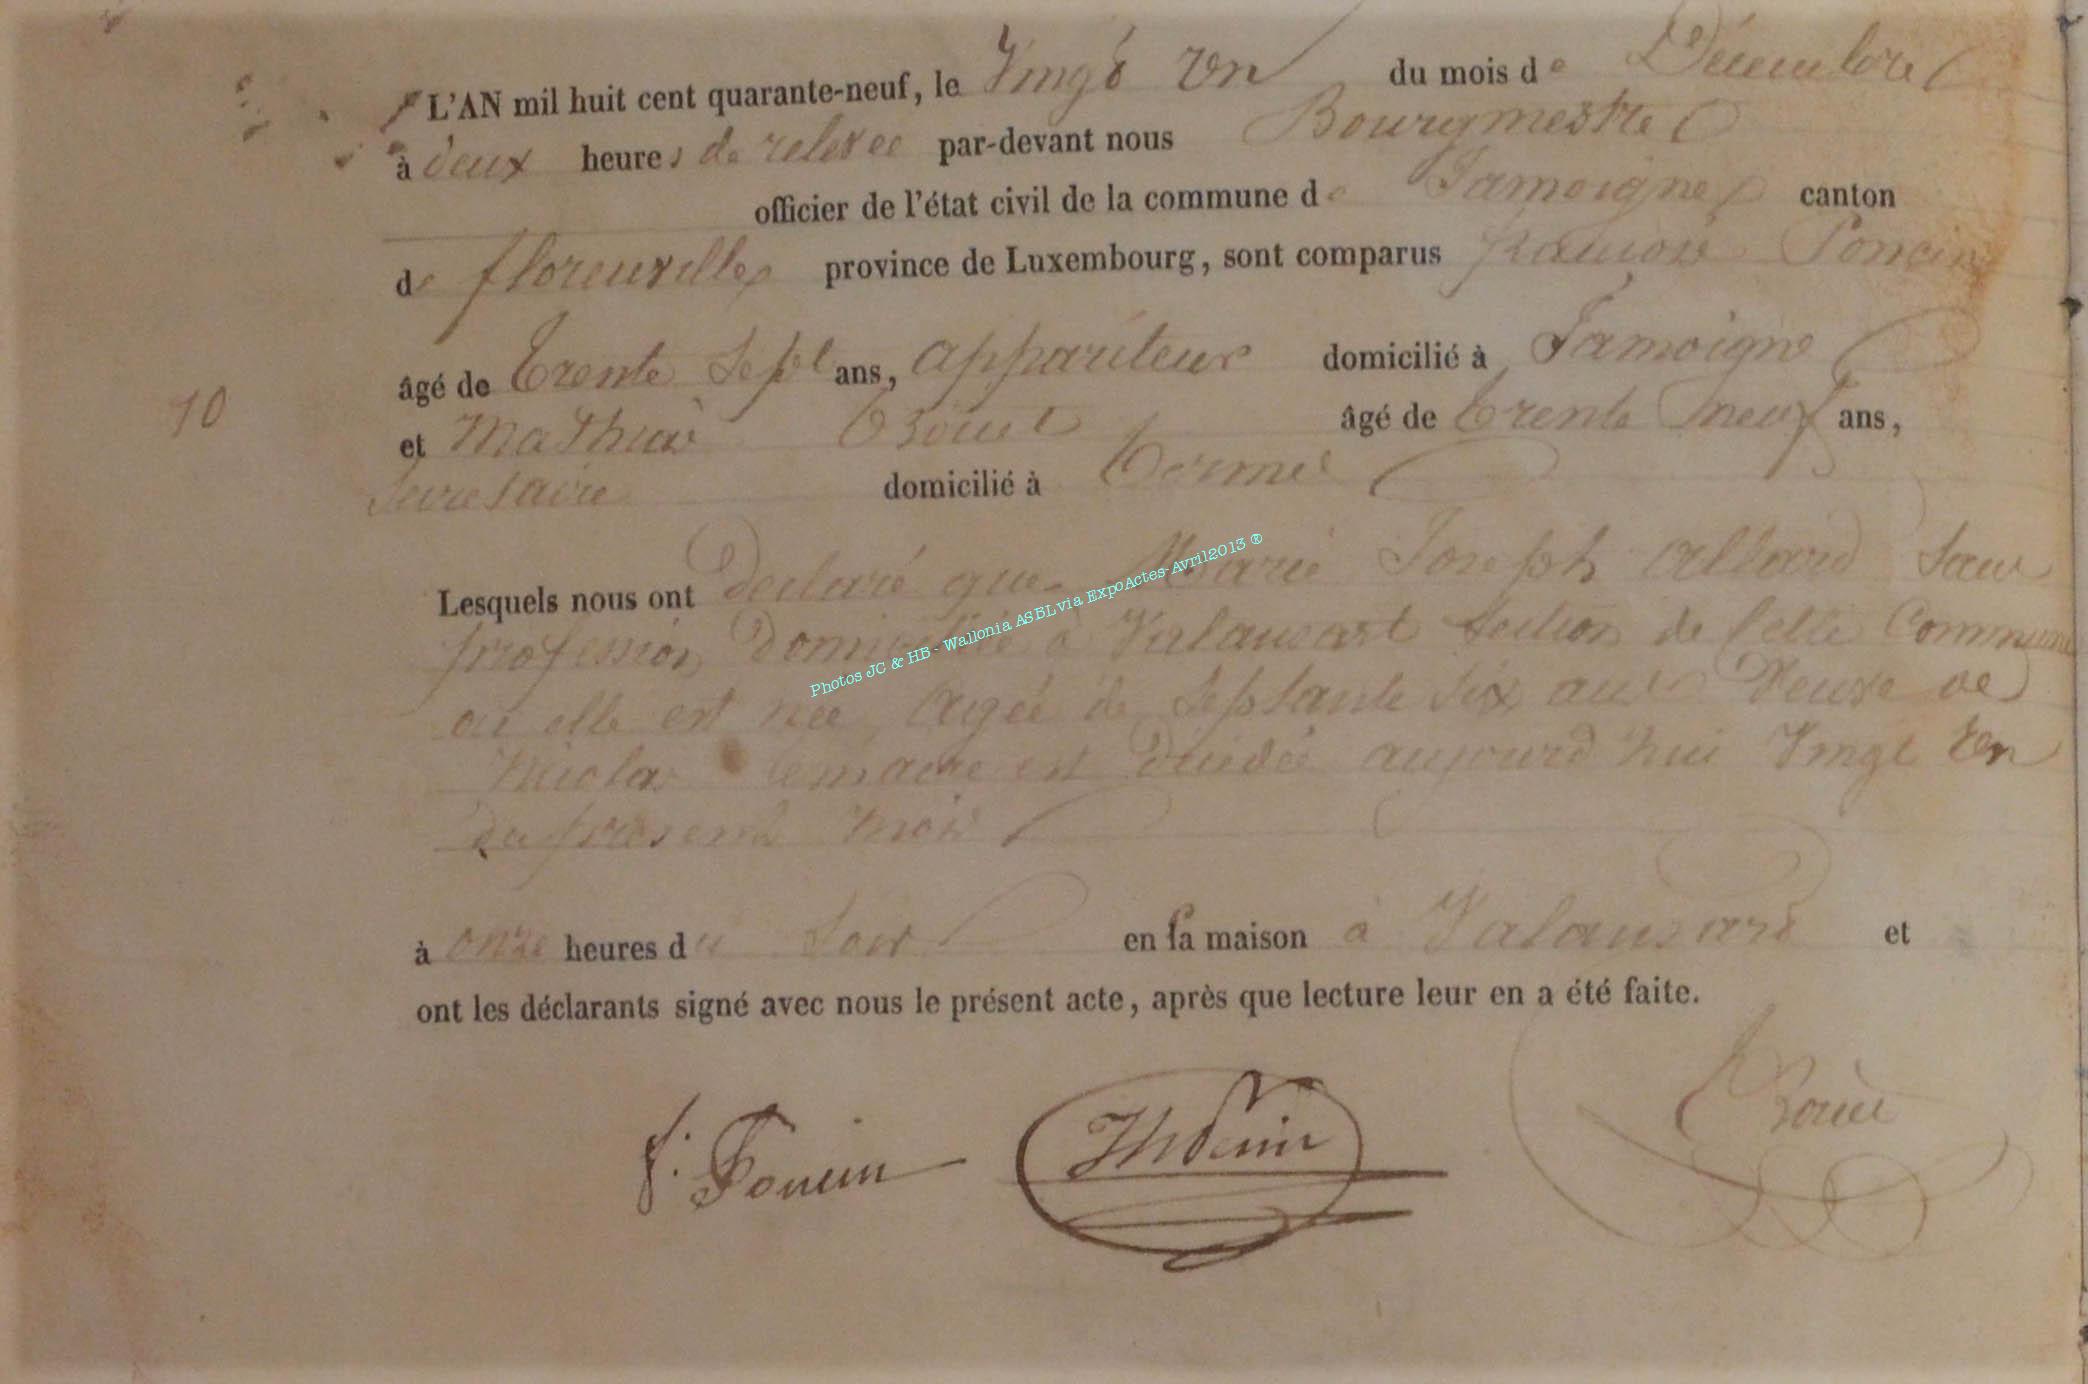 L'AN mil huit cent quarante-neuf, le Vingt Un du mois de Décembre
à deux heures de relevée par-devant nous Bourgmestre
officier de l'état civil de la commune de Jamoigne canton
de florenville province de Luxembourg, sont comparus françois Poncin
âgé de Trente Sept ans, appariteur domicilié à Jamoigne
10
et Mathieu âgé de trente neuf ans,
Secretaire domicilié à Termes
Lesquels nous ont declaré que Marie Joseph allard Sans
profession Domiciliée à Valansart Section de Cette Commune
ou elle est née, agée de Septante Six ans Veuve de
Nicolas lemaire est décédée aujourd'hui Vingt Un
du present mois
à onze heures du Soir en sa maison à Valansart et
ont les déclarants signé avec nous le présent acte, après que lecture leur en a été faite.
f. Poncin
Photos JC & HB - Wallonia ASBL via ExpoActes-Avril2013 ®